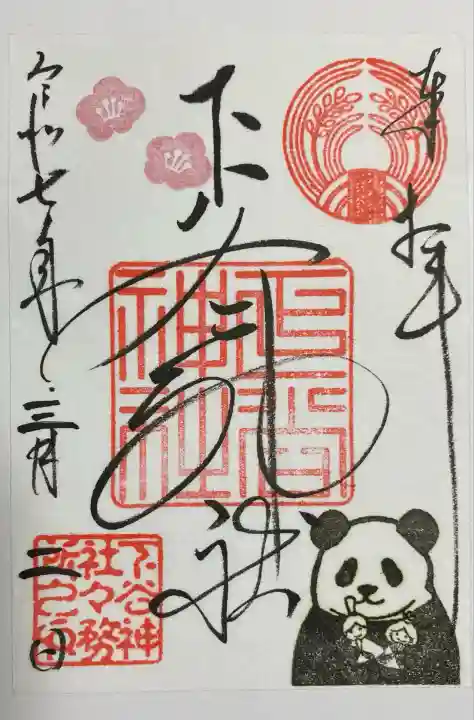 奉拝
下谷神社
下谷
神社
令和七年三月二日
下谷神
社々務
所之印